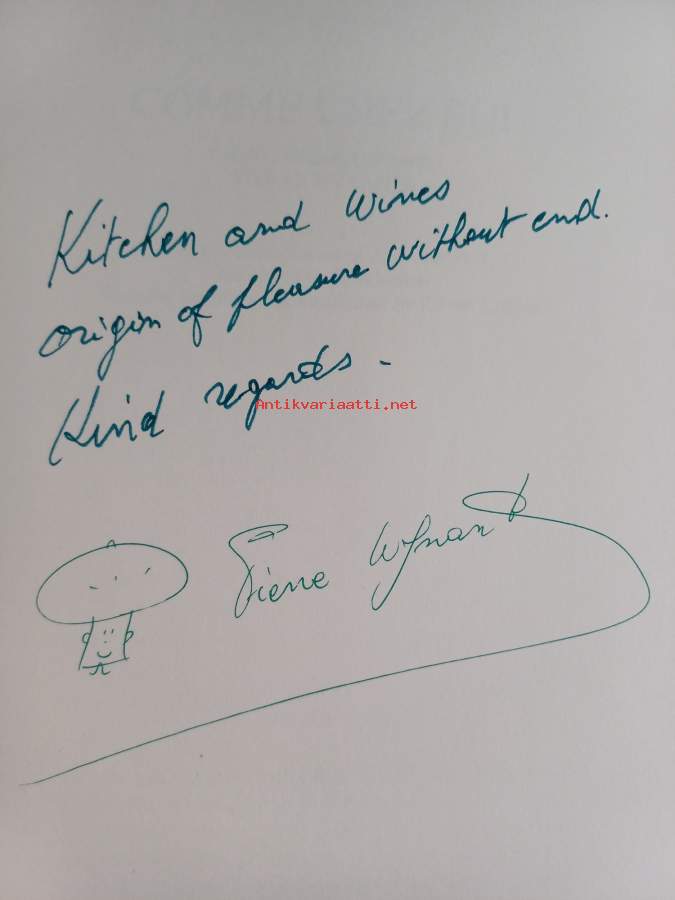 COMME CHEZ SOI
Kitchen and wines
origin of pleasure without end.
Kind regards.
Antikvariaatti.net
Pierre Wynants